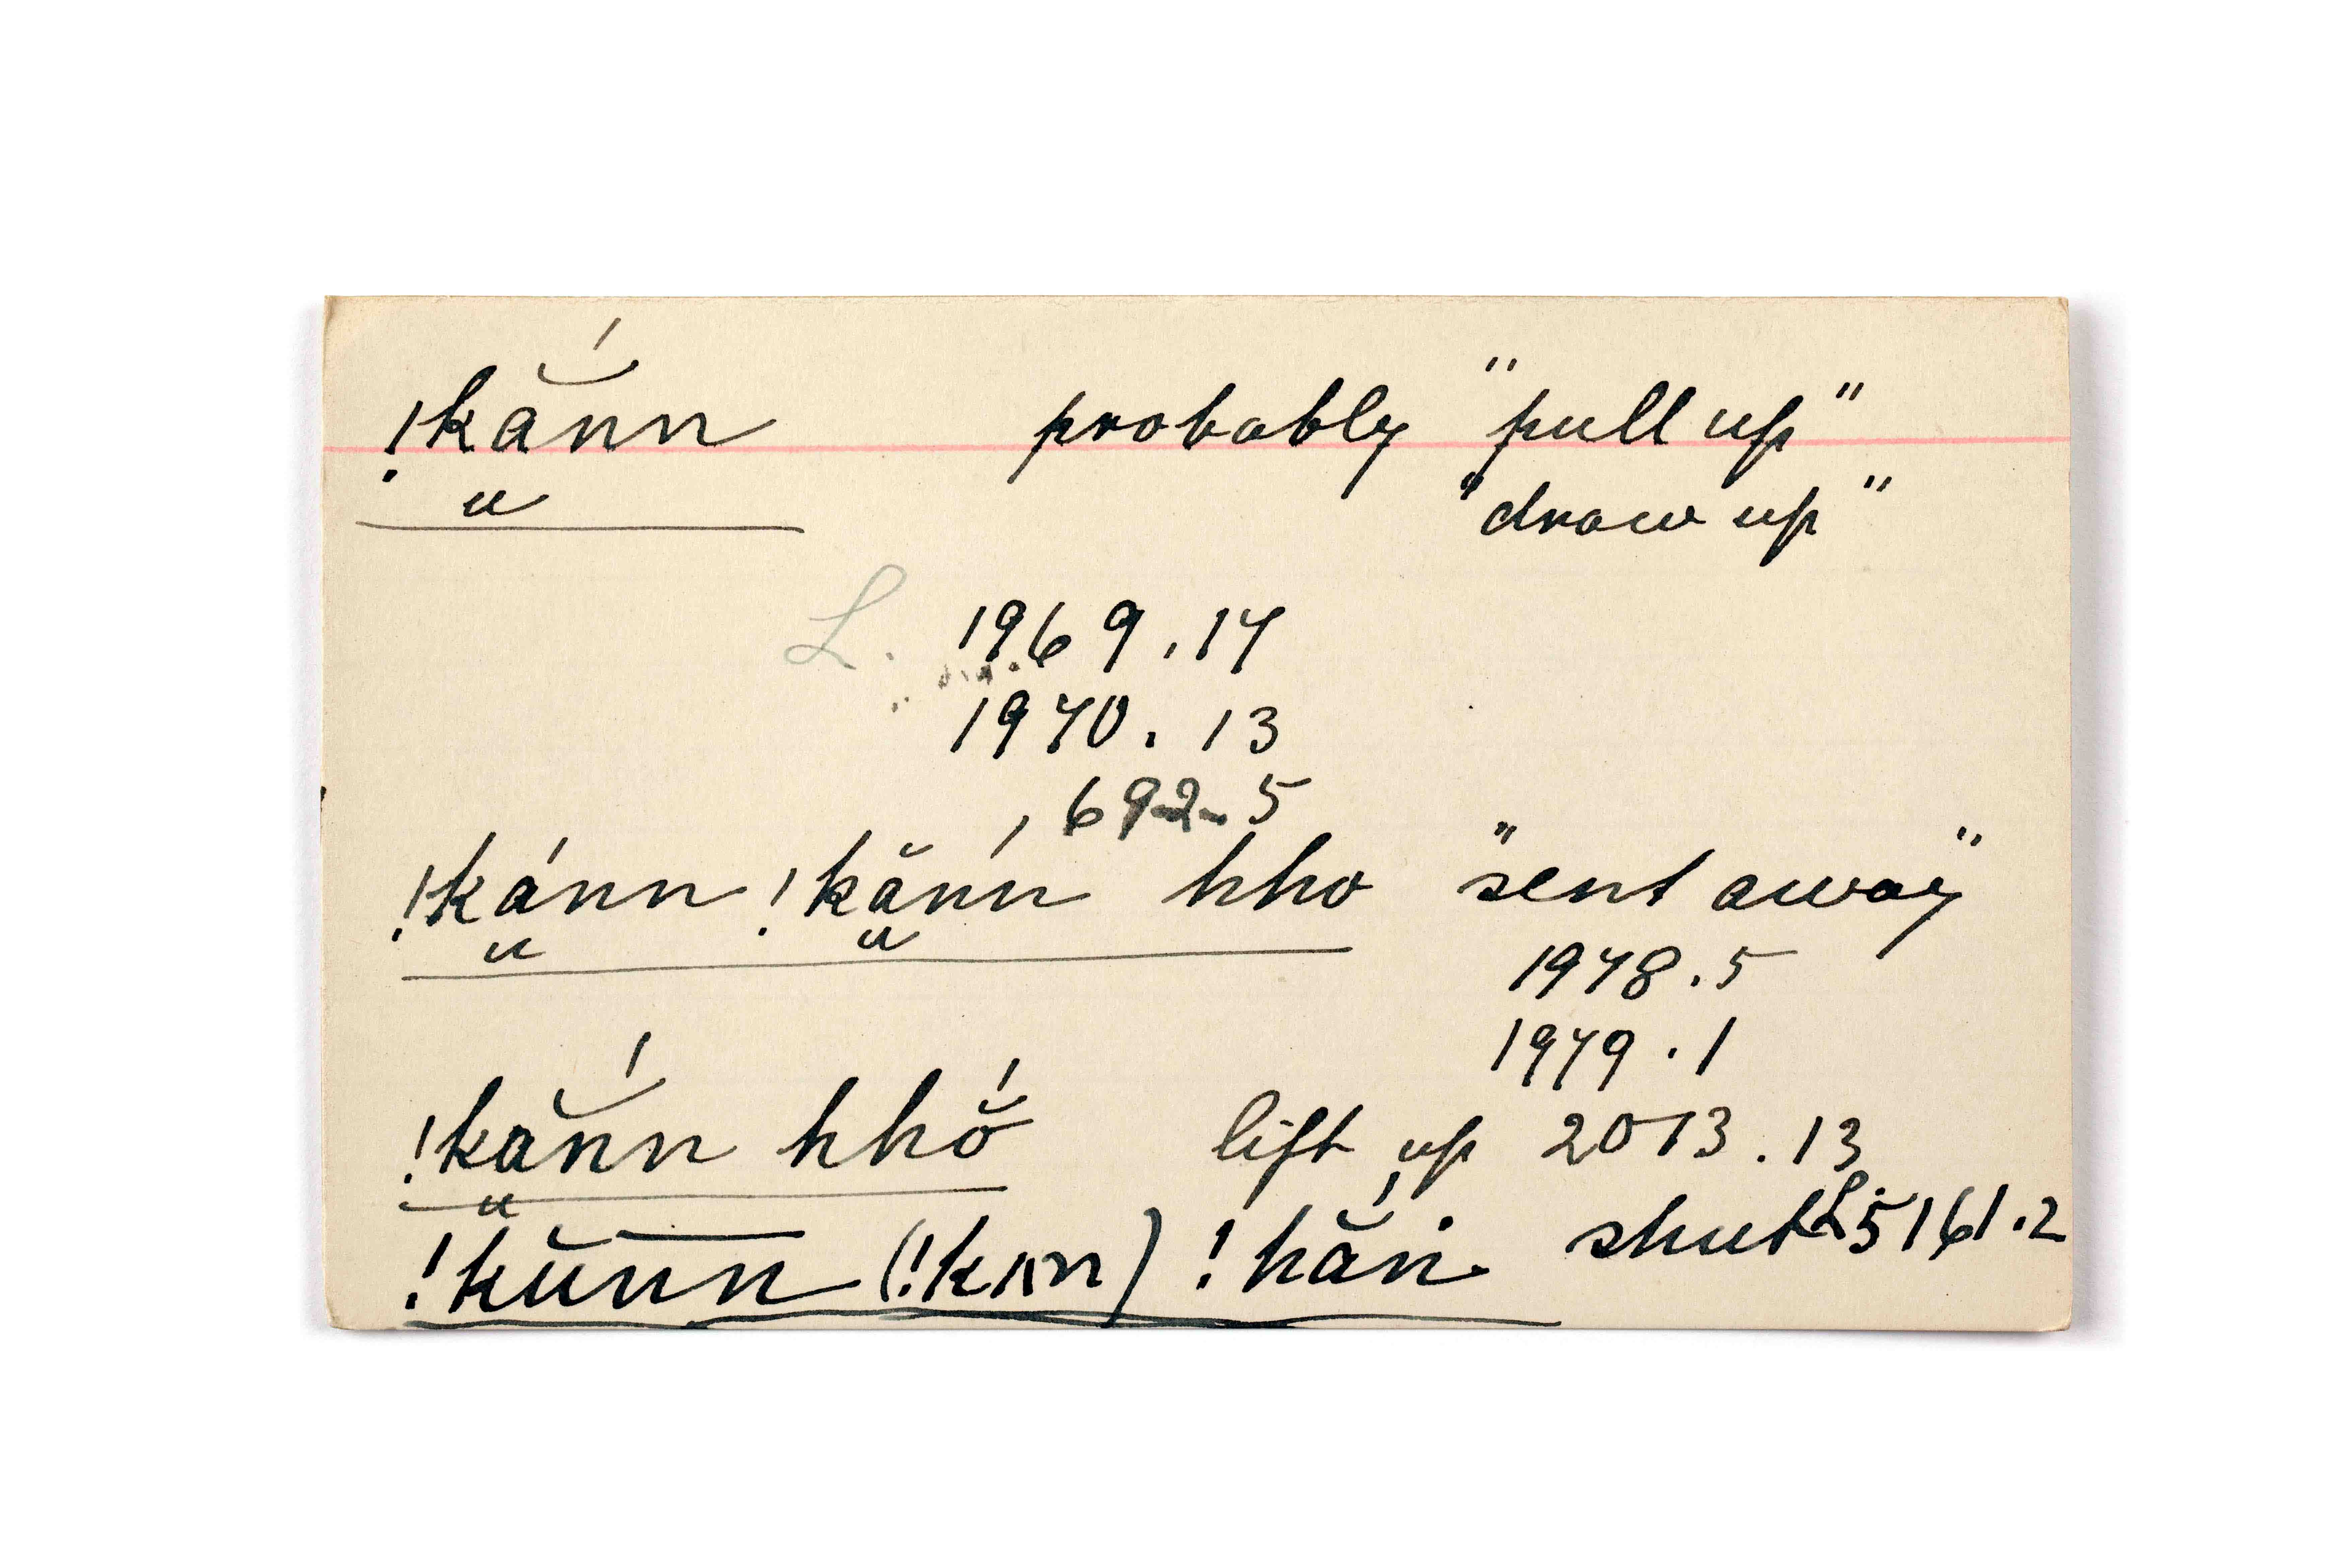 !kắnn probably "pull up"
u "draw up"
L. 1969.17
1970.13
692.5
!kánn !kắnn hho "sent away"
u u
1978.5
1979.1
!kắnn hhŏ́ lift up 2013.13
u
!kŭn̄n̄ (!knn) !hắn shut L.5161.2